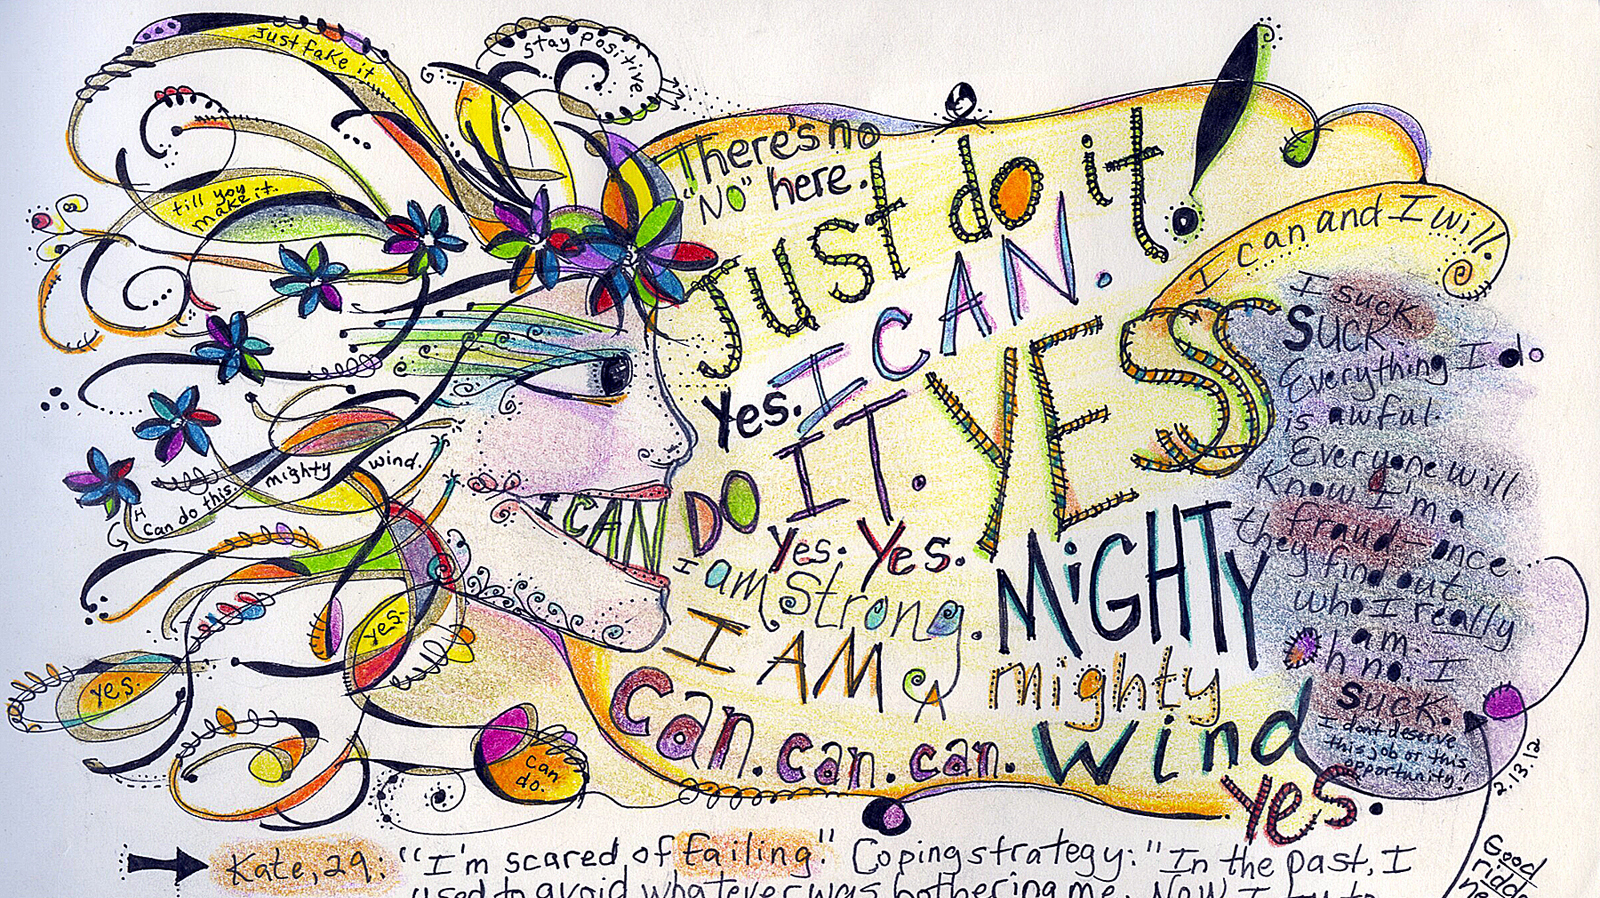 Just fake it
till you
make it.
stay positive
There's no
"NO" here.
Just do it!
Yes. I CAN.
DO IT. YES
yes. Yes.
I am strong.
I AM A
MiGHTY
mighty
wind
can. can. can.
Yes.
I CAN
I can and I will.
I suck.
SUCK.
Everything I do
is awful.
Everyone will
know I'm a
fraud—once...
they find out
who I really
am.
Oh no. I
suck.
I don't deserve
this job or this
opportunity!
mighty wind.
I can do this.
yes.
yes.
can
do.
2.13.12
Good
ridd
ne
Kate, 29: "I'm scared of failing." Coping strategy: "In the past, I
used to avoid whatever was bothering me. Now I try to